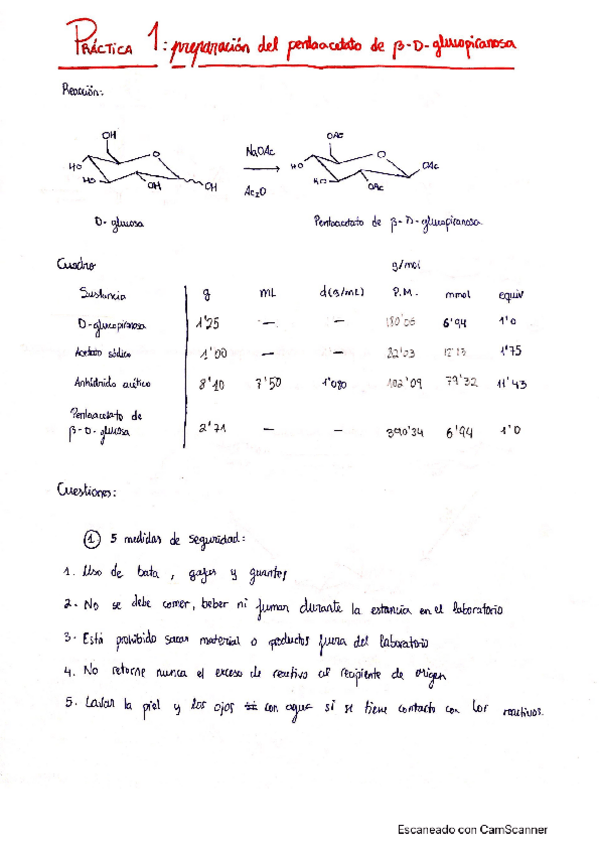 PRÁCTICA 1: preparación del pentaacetato de β-D-glucopiranosa
Reacción:
OH
O
HO
HO
OH
OH
D-glucosa
NaOAc
Ac2O
OAc
O
HO
HO
OAc
OAc
Pentaacetato de β-D-glucopiranosa
Cuadro
g/mol
Sustancia g mL d(g/mL) P.M. mmol equiv
D-glucopiranosa 1'25 — — 180'06 6'94 1'0
Acetato sódico 1'00 — — 82'03 12'13 1'75
Anhídrido acético 8'10 7'50 1'080 102'09 79'32 11'43
Pentaacetato de
β-D-glucosa 2'71 — — 390'34 6'94 1'0
Cuestiones:
1 5 medidas de seguridad:
1. Uso de bata, gafas y guantes
2. No se debe comer, beber ni fumar durante la estancia en el laboratorio
3. Está prohibido sacar material o productos fuera del laboratorio
4. No retorne nunca el exceso de reactivo al recipiente de origen
5. Lavar la piel y los ojos con agua si se tiene contacto con los reactivos.
Escaneado con CamScanner